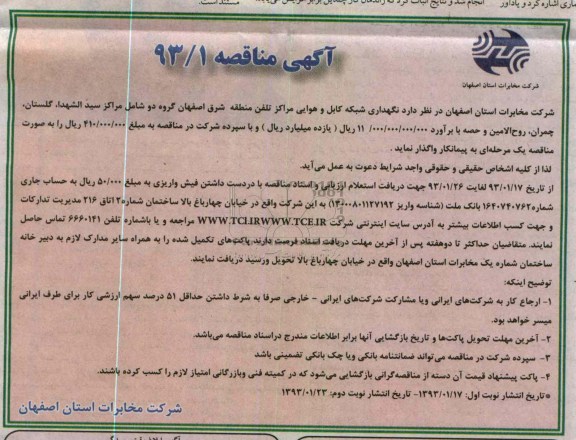 انجام شد و نتایج اثبات کرد که
ماری اشاره کرد و یادآور
آگهی مناقصه ۹۳/۱
شرکت مخابرات استان اصفهان
شرکت مخابرات استان اصفهان در نظر دارد نگهداری شبکه کابل و هوایی مراکز تلفن منطقه شرق اصفهان گروه دو شامل مراکز سید الشهدا، گلستان،
چمران، روح‌الامین و حصه با برآورد ۱۱/۰۰۰/۰۰۰/۰۰۰ ریال ( یازده میلیارد ریال ) و با سپرده شرکت در مناقصه به مبلغ ۴۱۰/۰۰۰/۰۰۰ ریال را به صورت
مناقصه یک مرحله‌ای به پیمانکار واگذار نماید .
لذا از کلیه اشخاص حقیقی و حقوقی واجد شرایط دعوت به عمل می‌آید.
از تاریخ ۹۳/۰۱/۱۷ لغایت ۹۳/۰۱/۲۶ جهت دریافت استعلام ارزیابی و اسناد مناقصه با دردست داشتن فیش واریزی به مبلغ ۵۰/۰۰۰ ریال به حساب جاری
شماره ۱۶۴۰۷۴۰۷۶۲ بانک ملت (شناسه واریز ۱۴۰۰۰۸۰۱۱۲۷۱۹۲) به این شرکت واقع در خیابان چهارباغ بالا ساختمان شماره ۲ اتاق ۲۱۶ مدیریت تدارکات
و جهت کسب اطلاعات بیشتر به آدرس سایت اینترنتی شرکت WWW.TCI.IR WWW.TCE.IR مراجعه و یا باشماره تلفن ۶۶۶۰۱۴۱ تماس حاصل
نمایند. متقاضیان حداکثر تا دوهفته پس از آخرین مهلت دریافت اسناد فرصت دارند پاکت‌های تکمیل شده را به همراه سایر مدارک لازم به دبیر خانه
ساختمان شماره یک مخابرات استان اصفهان واقع در خیابان چهارباغ بالا تحویل ورسید دریافت نمایند.
توضیح اینکه:
۱- ارجاع کار به شرکت‌های ایرانی ویا مشارکت شرکت‌های ایرانی - خارجی صرفا به شرط داشتن حداقل ۵۱ درصد سهم ارزشی کار برای طرف ایرانی
میسر خواهد بود.
۲- آخرین مهلت تحویل پاکت‌ها و تاریخ بازگشایی آنها برابر اطلاعات مندرج دراسناد مناقصه می‌باشد.
۳- سپرده شرکت در مناقصه می‌تواند ضمانتنامه بانکی ویا چک بانکی تضمینی باشد
۴- پاکت پیشنهاد قیمت آن دسته از مناقصه‌گرانی بازگشایی می‌شود که در کمیته فنی وبازرگانی امتیاز لازم را کسب کرده باشند.
*تاریخ انتشار نوبت اول: ۱۳۹۳/۰۱/۱۷- تاریخ انتشار نوبت دوم: ۱۳۹۳/۰۱/۲۳
شرکت مخابرات استان اصفهان